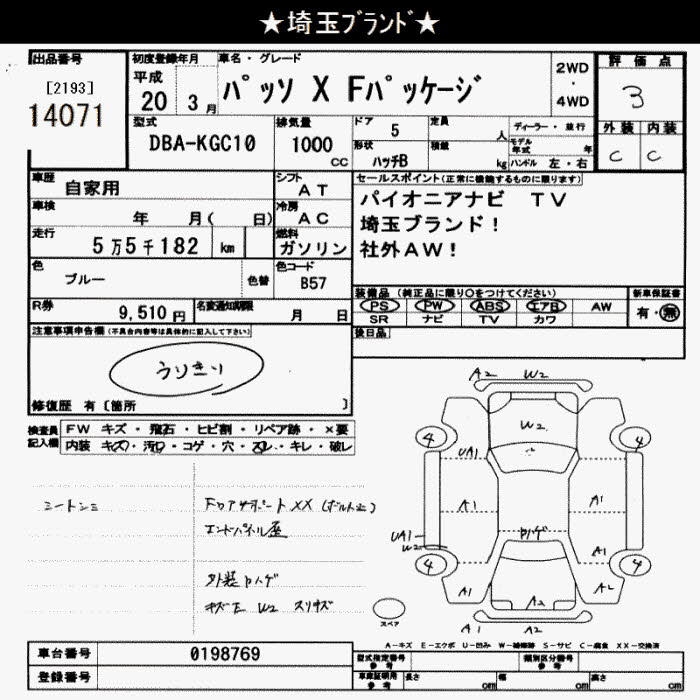 ★埼玉ﾌﾞﾗﾝﾄﾞ★
出品番号
[2193]
14071
初度登録年月
平成
20 3月
車名・グレード
ﾊﾟｯソ X Fﾊﾟｯケージ
2WD
・
4WD
評価点
3
外装 内装
C C
型式
DBA-KGC10
排気量
1000
cc
ドア
5
定員
人
形状
ハッチB
積載
kg
ディーラー・並行
モデル年式 年
ハンドル 左・右
車歴
自家用
シフト
AT
車検
年 月( 日)
冷房
AC
走行
5万5千182 km
燃料
ガソリン
色
ブルー
色替
色コード
B57
R券
9,510円
名変通知期限
月 日
セールスポイント(正常に機能するものに限ります)
パイオニアナビ TV
埼玉ブランド!
社外AW!
装備品(純正品に限り○をつけてください)
PS PW ABS エアB AW
SR ナビ TV カワ
新車保証書
有・無
後日品
注意事項申告欄(不具合内容等は具体的に記入して下さい)
うりきり
修復歴 有〔箇所 〕
検査員
記入欄
FW キズ・飛石・ヒビ割・リペア跡・×要
内装 キズ・汚れ・コゲ・穴・スレ・キレ・破レ
シートシミ
FコアサポートXX(ボルト止)
エンドパネル歪
外装ハゲ
キズE W2 スリキズ
A2 W2
W2
4 4
UA1
A1 A1
UA1
W2
ハゲ
A1
4 4
A1 A2 A2
A1 A2
スペア
A-キズ E-エクボ U-凹み W-補修跡 S-サビ C-腐食 XX-交換済
車台番号
0198769
登録番号
型式指定番号
参考
類別区分番号
参考
車庫証明用
参考
長さ cm 幅 cm 高さ cm